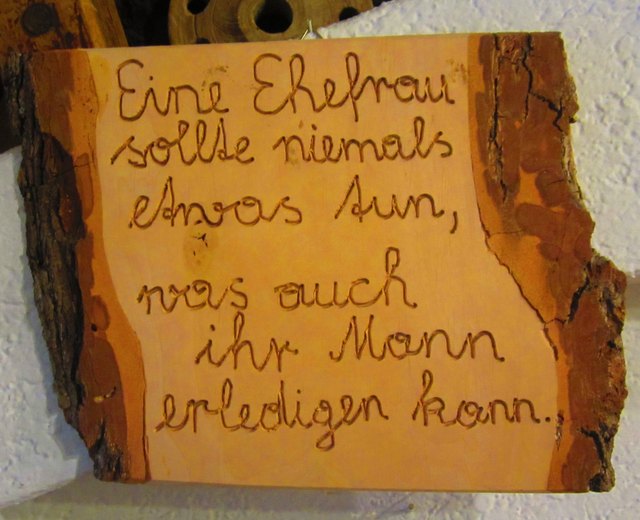 Eine Ehefrau
sollte niemals
etwas tun,
was auch
ihr Mann
erledigen kann.